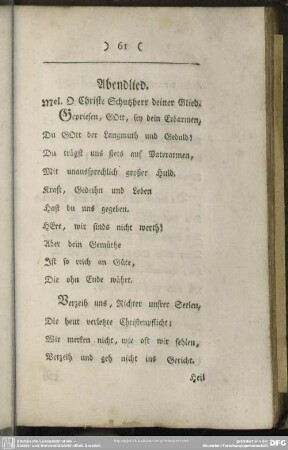 ) 61 (
Abendlied.
Mel. O Christe Schutzherr deiner Glied.
Gepriesen, GOtt, sey dein Erbarmen,
Du GOtt der Langmuth und Geduld!
Du trägst uns stets auf Vaterarmen,
Mit unaussprechlich großer Huld.
Kraft, Gedeihn und Leben
Hast du uns gegeben.
HErr, wir sinds nicht werth!
Aber dein Gemüthe
Ist so reich an Güte,
Die ohn Ende währt.
Verzeih uns, Richter unsrer Seelen,
Die heut verletzte Christenpflicht;
Wir merken nicht, wie oft wir fehlen,
Verzeih und geh nicht ins Gericht.
Heil
DFG